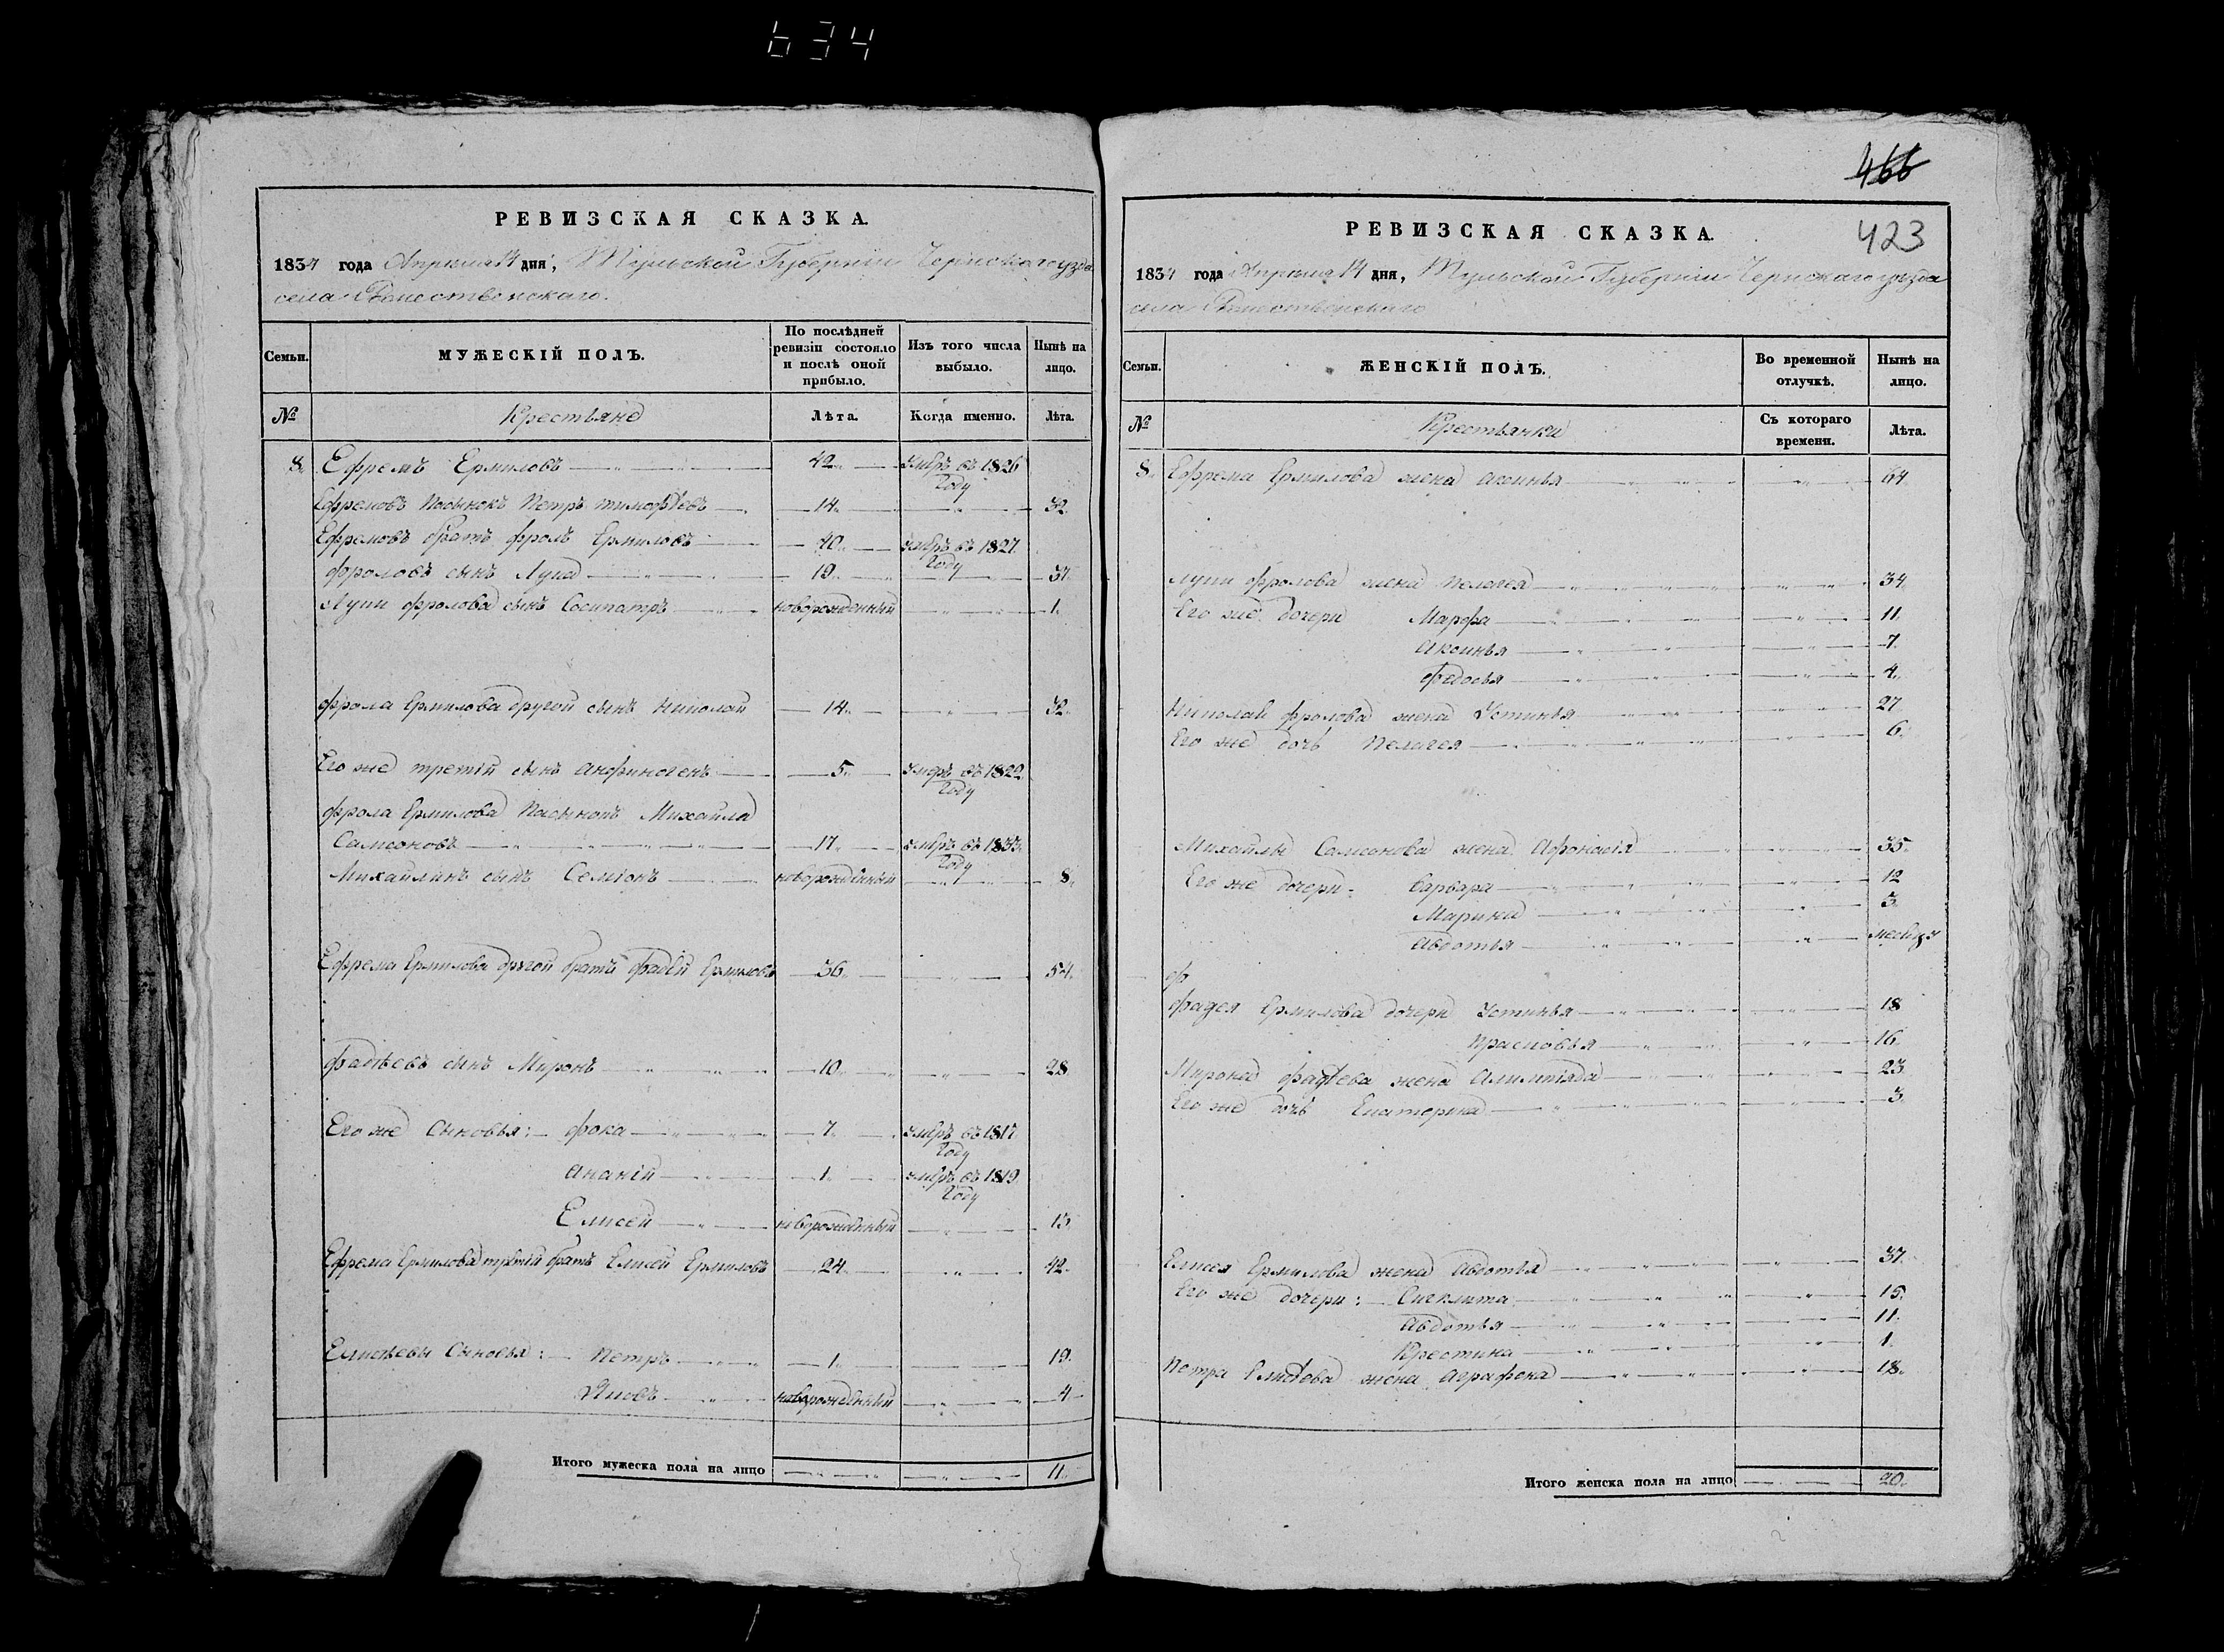 634
РЕВИЗСКАЯ СКАЗКА.
1834 года Апреля 14 дня, Тульской Губернiи Чернскаго уезда
села Рожественскаго.
Семьи.
МУЖЕСКІЙ ПОЛЪ.
По послѣдней ревизіи состояло и послѣ оной прибыло.
Изъ того числа выбыло.
Нынѣ на лицо.
№
Крестьяне
Лѣта.
Когда именно.
Лѣта.
8. Ефремъ Ермиловъ 42. умѣръ въ 1826 году
Ефремовъ пасынокъ Петръ тимофѣевъ 14. 32.
Ефремовъ братъ фролъ Ермиловъ 40. умѣръ въ 1827 году
фроловъ сынъ Лука 19. 37.
Луки фролова сынъ Сосипатръ новорожденный 1.
фрола Ермилова другой сынъ Николай 14. 32.
Его же третiй сынъ анфиногенъ 5. умеръ въ 1822 году
фрола Ермилова пасынокъ Михайла
Самсоновъ 17. умѣръ въ 1833 году
Михайлинъ сынъ Семiонъ новорожденный 8.
Ефрема Ермилова другой братъ фадѣй Ермиловъ 36. 54.
фадѣевъ сынъ Миронъ 10. 28.
Его же Сыновья: фока 7. умѣръ въ 1817 году
ананiй 1. умѣръ въ 1819 году
Елисей новорожденный 15.
Ефрема Ермилова третiй братъ Елисей Ермиловъ 24. 42.
Елисѣевы Сыновья: Петръ 1. 19.
Яковъ новорожденный 4
Итого мужеска пола на лицо 11.
466
423
РЕВИЗСКАЯ СКАЗКА.
1834 года Апреля 14 дня, Тульской Губернiи Чернскаго уезда
села Рожественскаго
Семьи.
ЖЕНСКІЙ ПОЛЪ.
Во временной отлучкѣ.
Нынѣ на лицо.
№
Крестьянки
Съ котораго времени.
Лѣта.
8. Ефрема Ермилова жена 64
Луки фролова жена пелагея 34
Его же дочери Марфа 11.
Аксинья 7.
федосья 4.
Николая фролова жена Устинья 27
Его же дочь пелагея 6.
Михайлы Самсонова жена Афонасiя 35.
Его же дочери варвара 12
Марина 3.
авдотья
ф
фадея Ермилова дочери Устинья 18
прасковья 16
Мирона фадѣева жена Алимпiяда 23
Его же дочь Екатерина 3.
Елисея Ермилова жена авдотья 37.
Его же дочери: Сиклита 15.
авдотья 11.
Крестина 1.
Петра Елисѣева жена аграфена 18.
Итого женска пола на лицо 20.